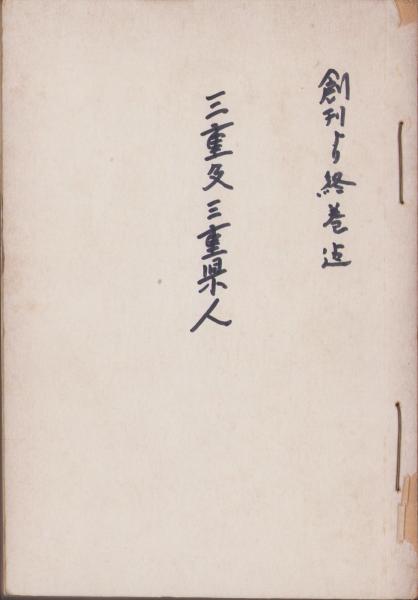 創刊より終巻迄
三重及三重県人